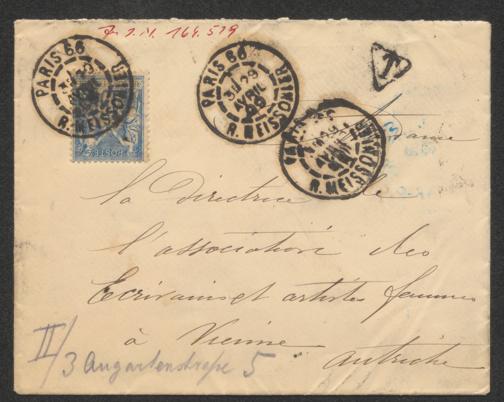 I.N. 164.579
PARIS 66
R. MEISSONIER
POSTES
PARIS 66
3E/29
AVRIL
R. MEISSONIER
T
PARIS 66
R. MEISSONIER
La Directrice de
l'association des
Ecrivains et artistes femmes
à Vienne
Autriche
II/
3 Augartenstraße 5